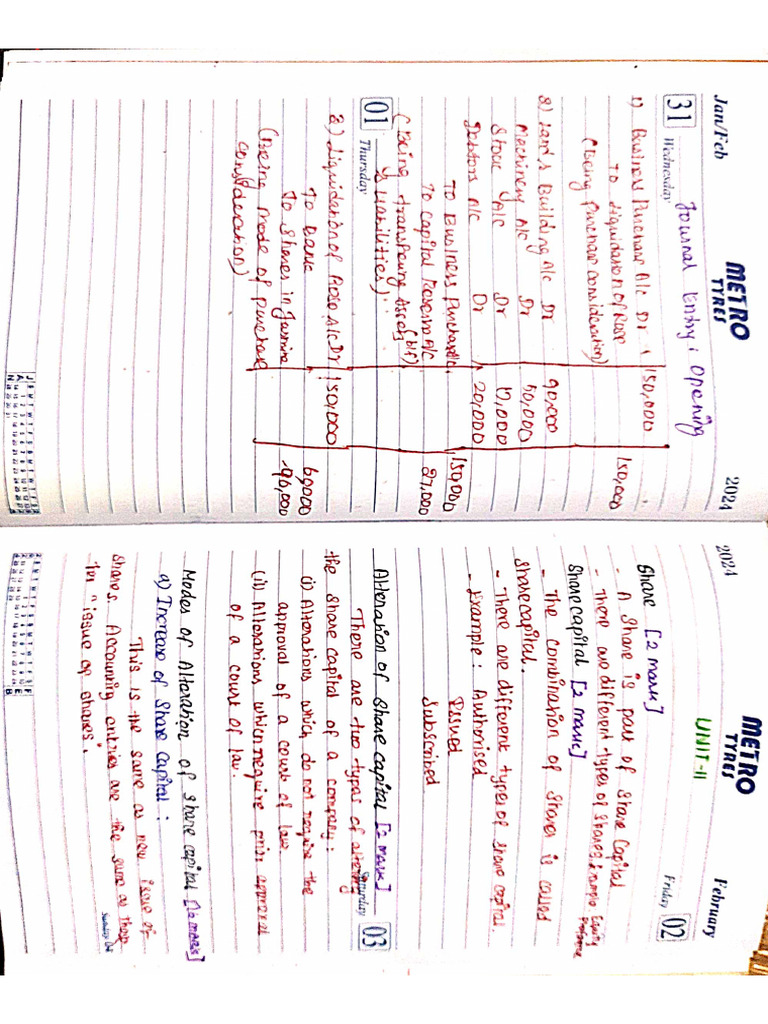 Jan/Feb
METRO
TYRES
2024
31 Wednesday
Journal Entry : Opening
1) Business Purchase A/c Dr 150,000
To Liquidation of Rose 150,000
(Being Purchase Consideration)
Land & Building A/c Dr 90,000
Machinery A/c Dr 50,000
Stock A/c Dr
Debtors A/c Dr 20,000
To Business Purchase A/c 150,000
To Capital Reserve A/c (b/f) 27,000
(Being transfering Assets
& Liabilities)
01 Thursday
Liquidation of Rose A/c Dr 150,000
To Bank 60,000
To Shares in Jasmine 90,000
(Being mode of Purchase
consideration)
2024
METRO
TYRES
February
UNIT-II
Friday 02
Share [2 mark]
- A Share is part of Share Capital
- There are different types of Shares, Example Equity
Sharecapital [2 mark]
- The combination of Shares is called
Sharecapital.
- There are different types of Share capital.
- Example : Authorised
Issued
Subscribed
Alteration of Share capital [2 mark]
Saturday 03
There are two types of altering
the Share capital of a company:
(i) Alterations which do not require the
approval of a court of law.
(ii) Alterations which require prior approval
of a court of law.
Modes of Alteration of Share capital [12 mark]
a) Increase of Share Capital :
This is the same as new issue of
Shares. Accounting entries are the same as those
for "issue of shares".
Sunday 04